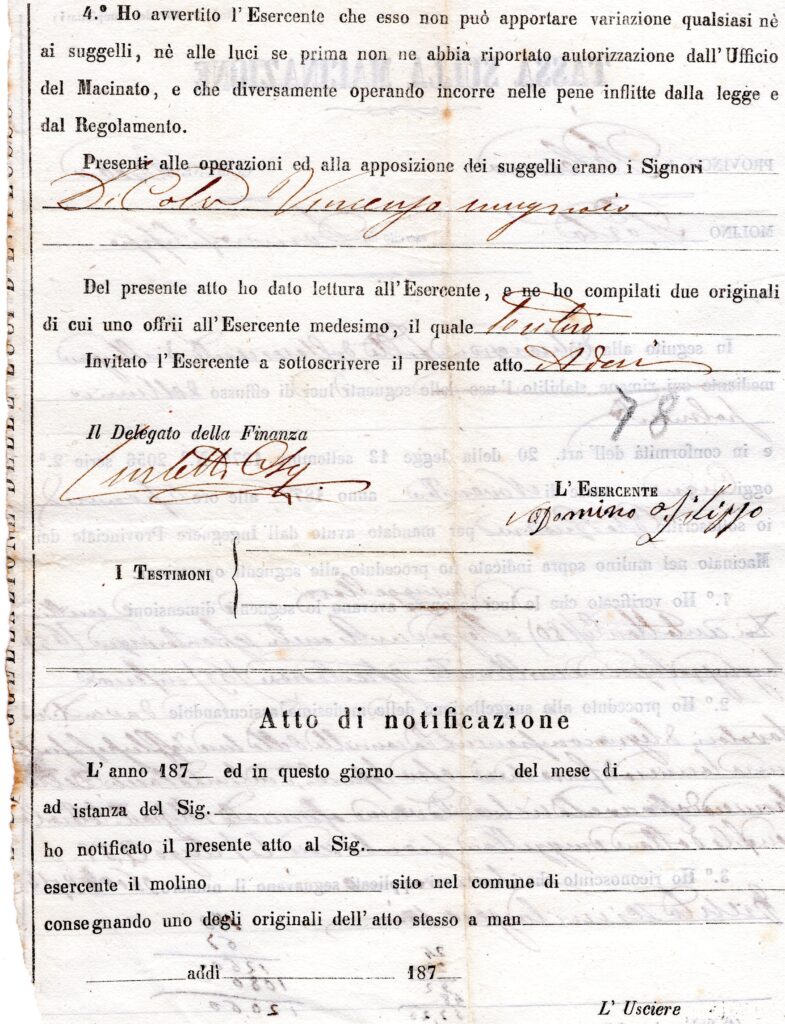 4.° Ho avvertito l'Esercente che esso non può apportare variazione qualsiasi nè
ai suggelli, nè alle luci se prima non ne abbia riportato autorizzazione dall'Ufficio
del Macinato, e che diversamente operando incorre nelle pene inflitte dalla legge e
dal Regolamento.
Presenti alle operazioni ed alla apposizione dei suggelli erano i Signori
Di Cola Vincenzo mugnaio
Del presente atto ho dato lettura all'Esercente, e ne ho compilati due originali
di cui uno offrii all'Esercente medesimo, il quale
Invitato l'Esercente a sottoscrivere il presente atto
78
Il Delegato della Finanza
L'Esercente
Domino Filippo
I Testimoni
Atto di notificazione
L'anno 187 ed in questo giorno del mese di
ad istanza del Sig.
ho notificato il presente atto al Sig.
esercente il molino sito nel comune di
consegnando uno degli originali dell'atto stesso a man
addì 187
L' Usciere